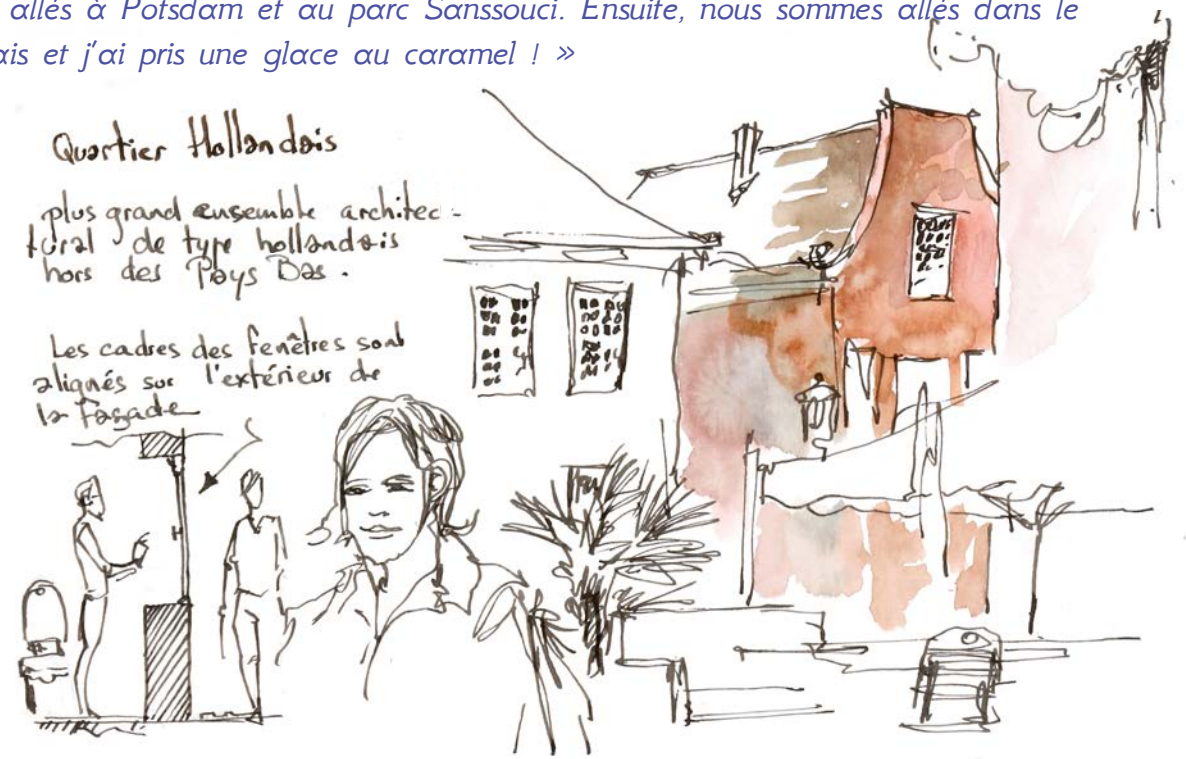 allés à Potsdam et au parc Sanssouci. Ensuite, nous sommes allés dans le
ais et j'ai pris une glace au caramel ! »
Quartier Hollandais
plus grand ensemble architec-
tural de type hollandais
hors des Pays Bas.
Les cadres des fenêtres sont
alignés sur l'extérieur de
la façade